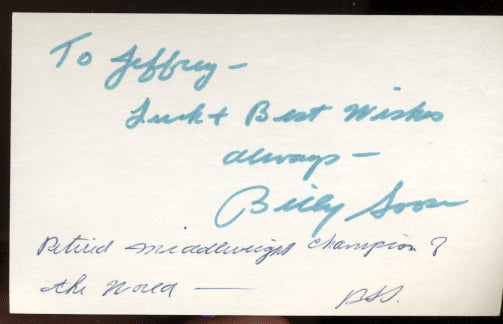 To Jeffrey -
Luck + Best Wishes
always -
Billy Soose
Retired middleweight champion of
the World —
B.S.